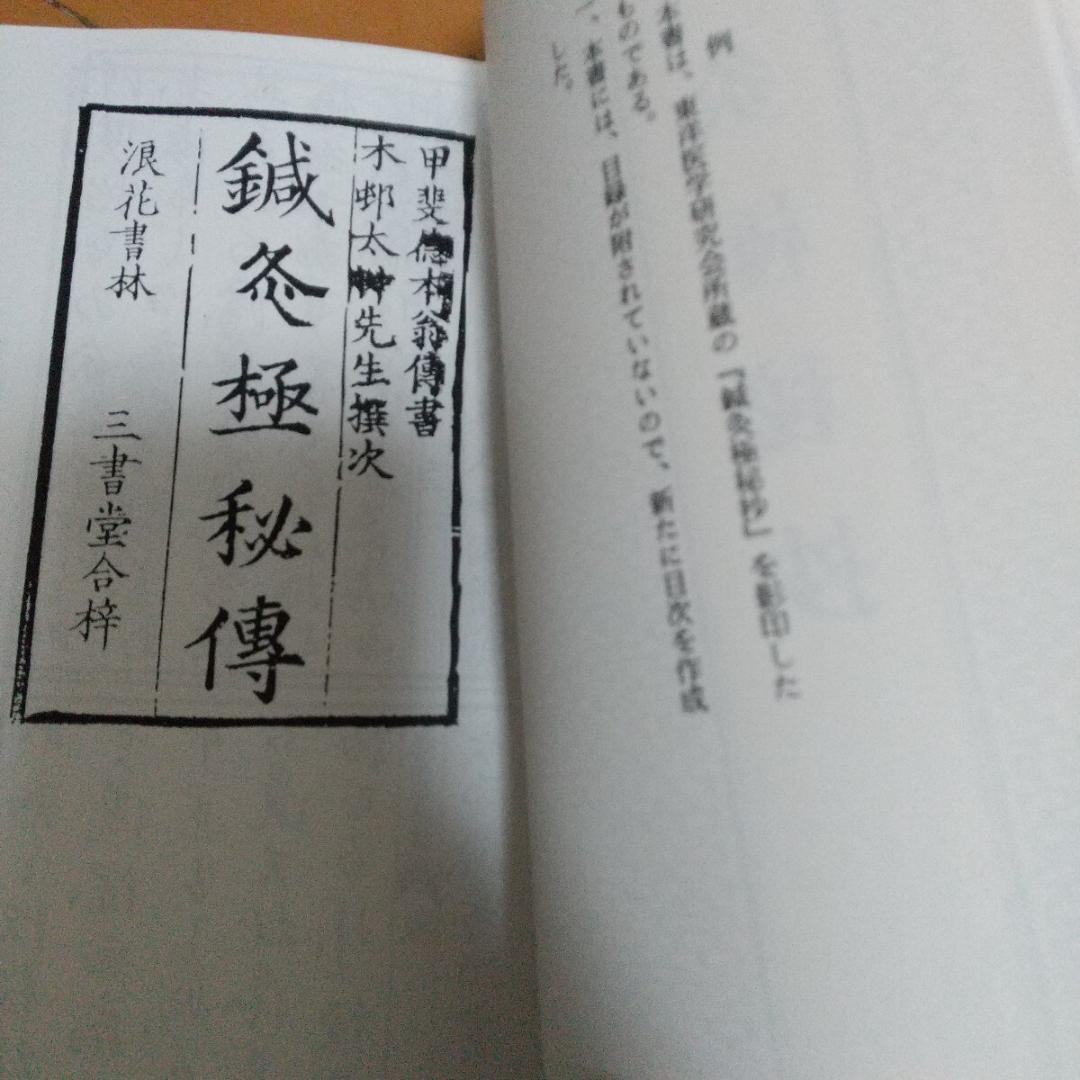 例
本書は、東洋医学研究会所蔵の『鍼灸極秘抄』を影印した
ものである。
一、本書には、目録が附されていないので、新たに目次を作成
した。
甲斐德本翁傳書
木邨太仲先生撰次
鍼灸極秘傳
浪花書林 三書堂合梓